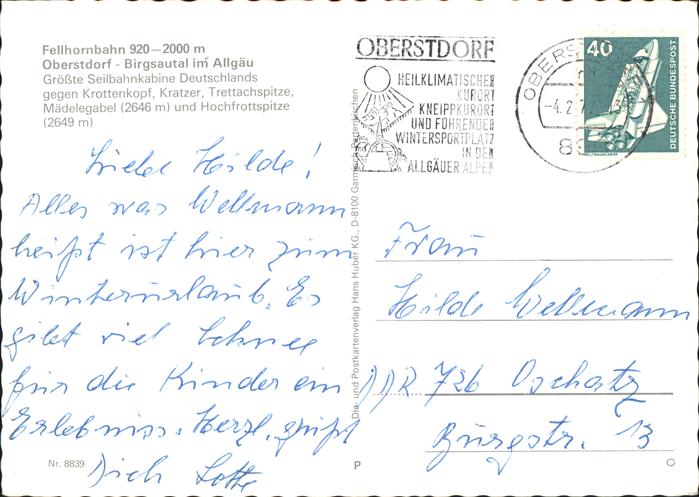 Fellhornbahn 920—2000 m
Oberstdorf - Birgsautal im Allgäu
Größte Seilbahnkabine Deutschlands
gegen Krottenkopf, Kratzer, Trettachspitze,
Mädelegabel (2646 m) und Hochfrottspitze
(2649 m)
Liebe Hilde!
Alles was Wellmann
heißt ist hier zum
Winterurlaub. Es
gibt viel Schnee
für die Kinder ein
Erlebnis. Herzl. grüßt
Dich Lotte
Nr. 8839
Dia- und Postkartenverlag Hans Huber KG., D-8100 Garmisch-Partenkirchen
P
OBERSTDORF
HEILKLIMATISCHER
KURORT
KNEIPPKURORT
UND FÜHRENDER
WINTERSPORTPLATZ
IN DEN
ALLGÄUER ALPEN
40
DEUTSCHE BUNDESPOST
Frau
Hilde Wellmann
DDR 726 Oschatz
Burgstr. 13